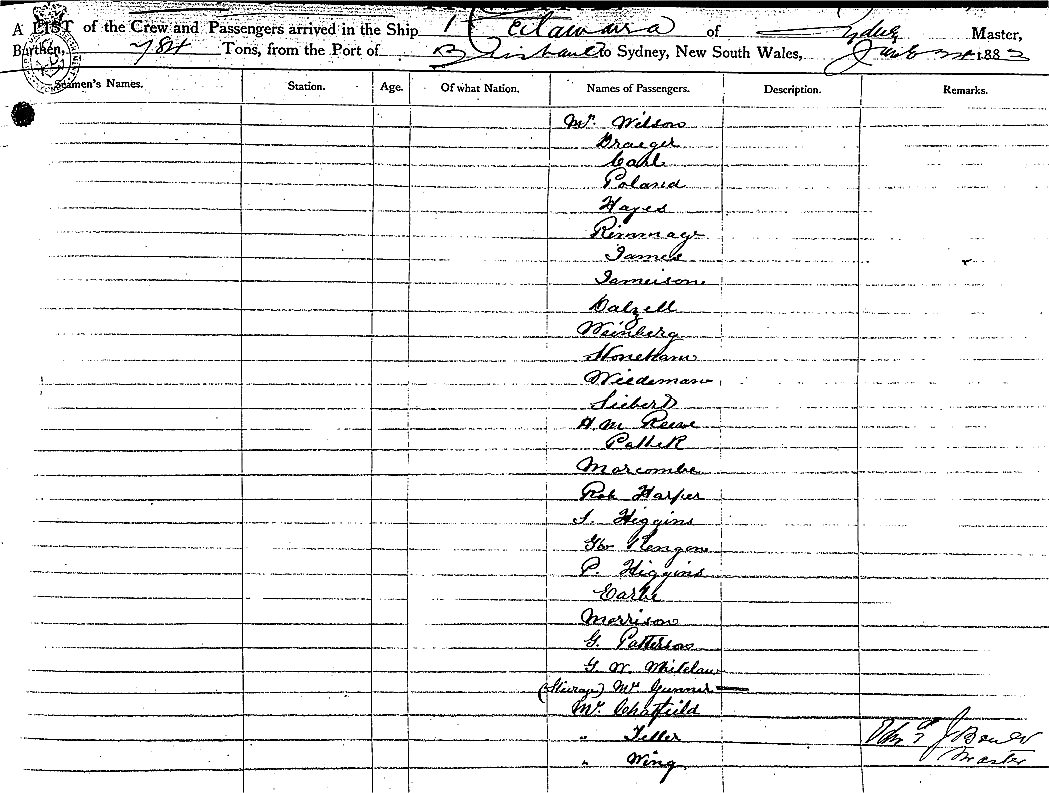 A LIST of the Crew and Passengers arrived in the Ship of Sydney Master,
Burthen, 784 Tons, from the Port of Brisbane to Sydney, New South Wales, 1883
Seamen's Names. Station. Age. Of what Nation. Names of Passengers. Description. Remarks.
Mr. Wilson
Draeger
Carl
Poland
Hayes
Rimmage
James
Jameison
Dalzell
Weinberg
Stoneham
Wiedeman
Siebert
H. M. Reeve
Marcombe
Rob Harper
J. Higgins
P. Higgins
Morrison
G. Patterson
G. W. Whitelaw
(Steerage) Mr Gunner
Mr. Chatfield
" Teller
" Wing
Master